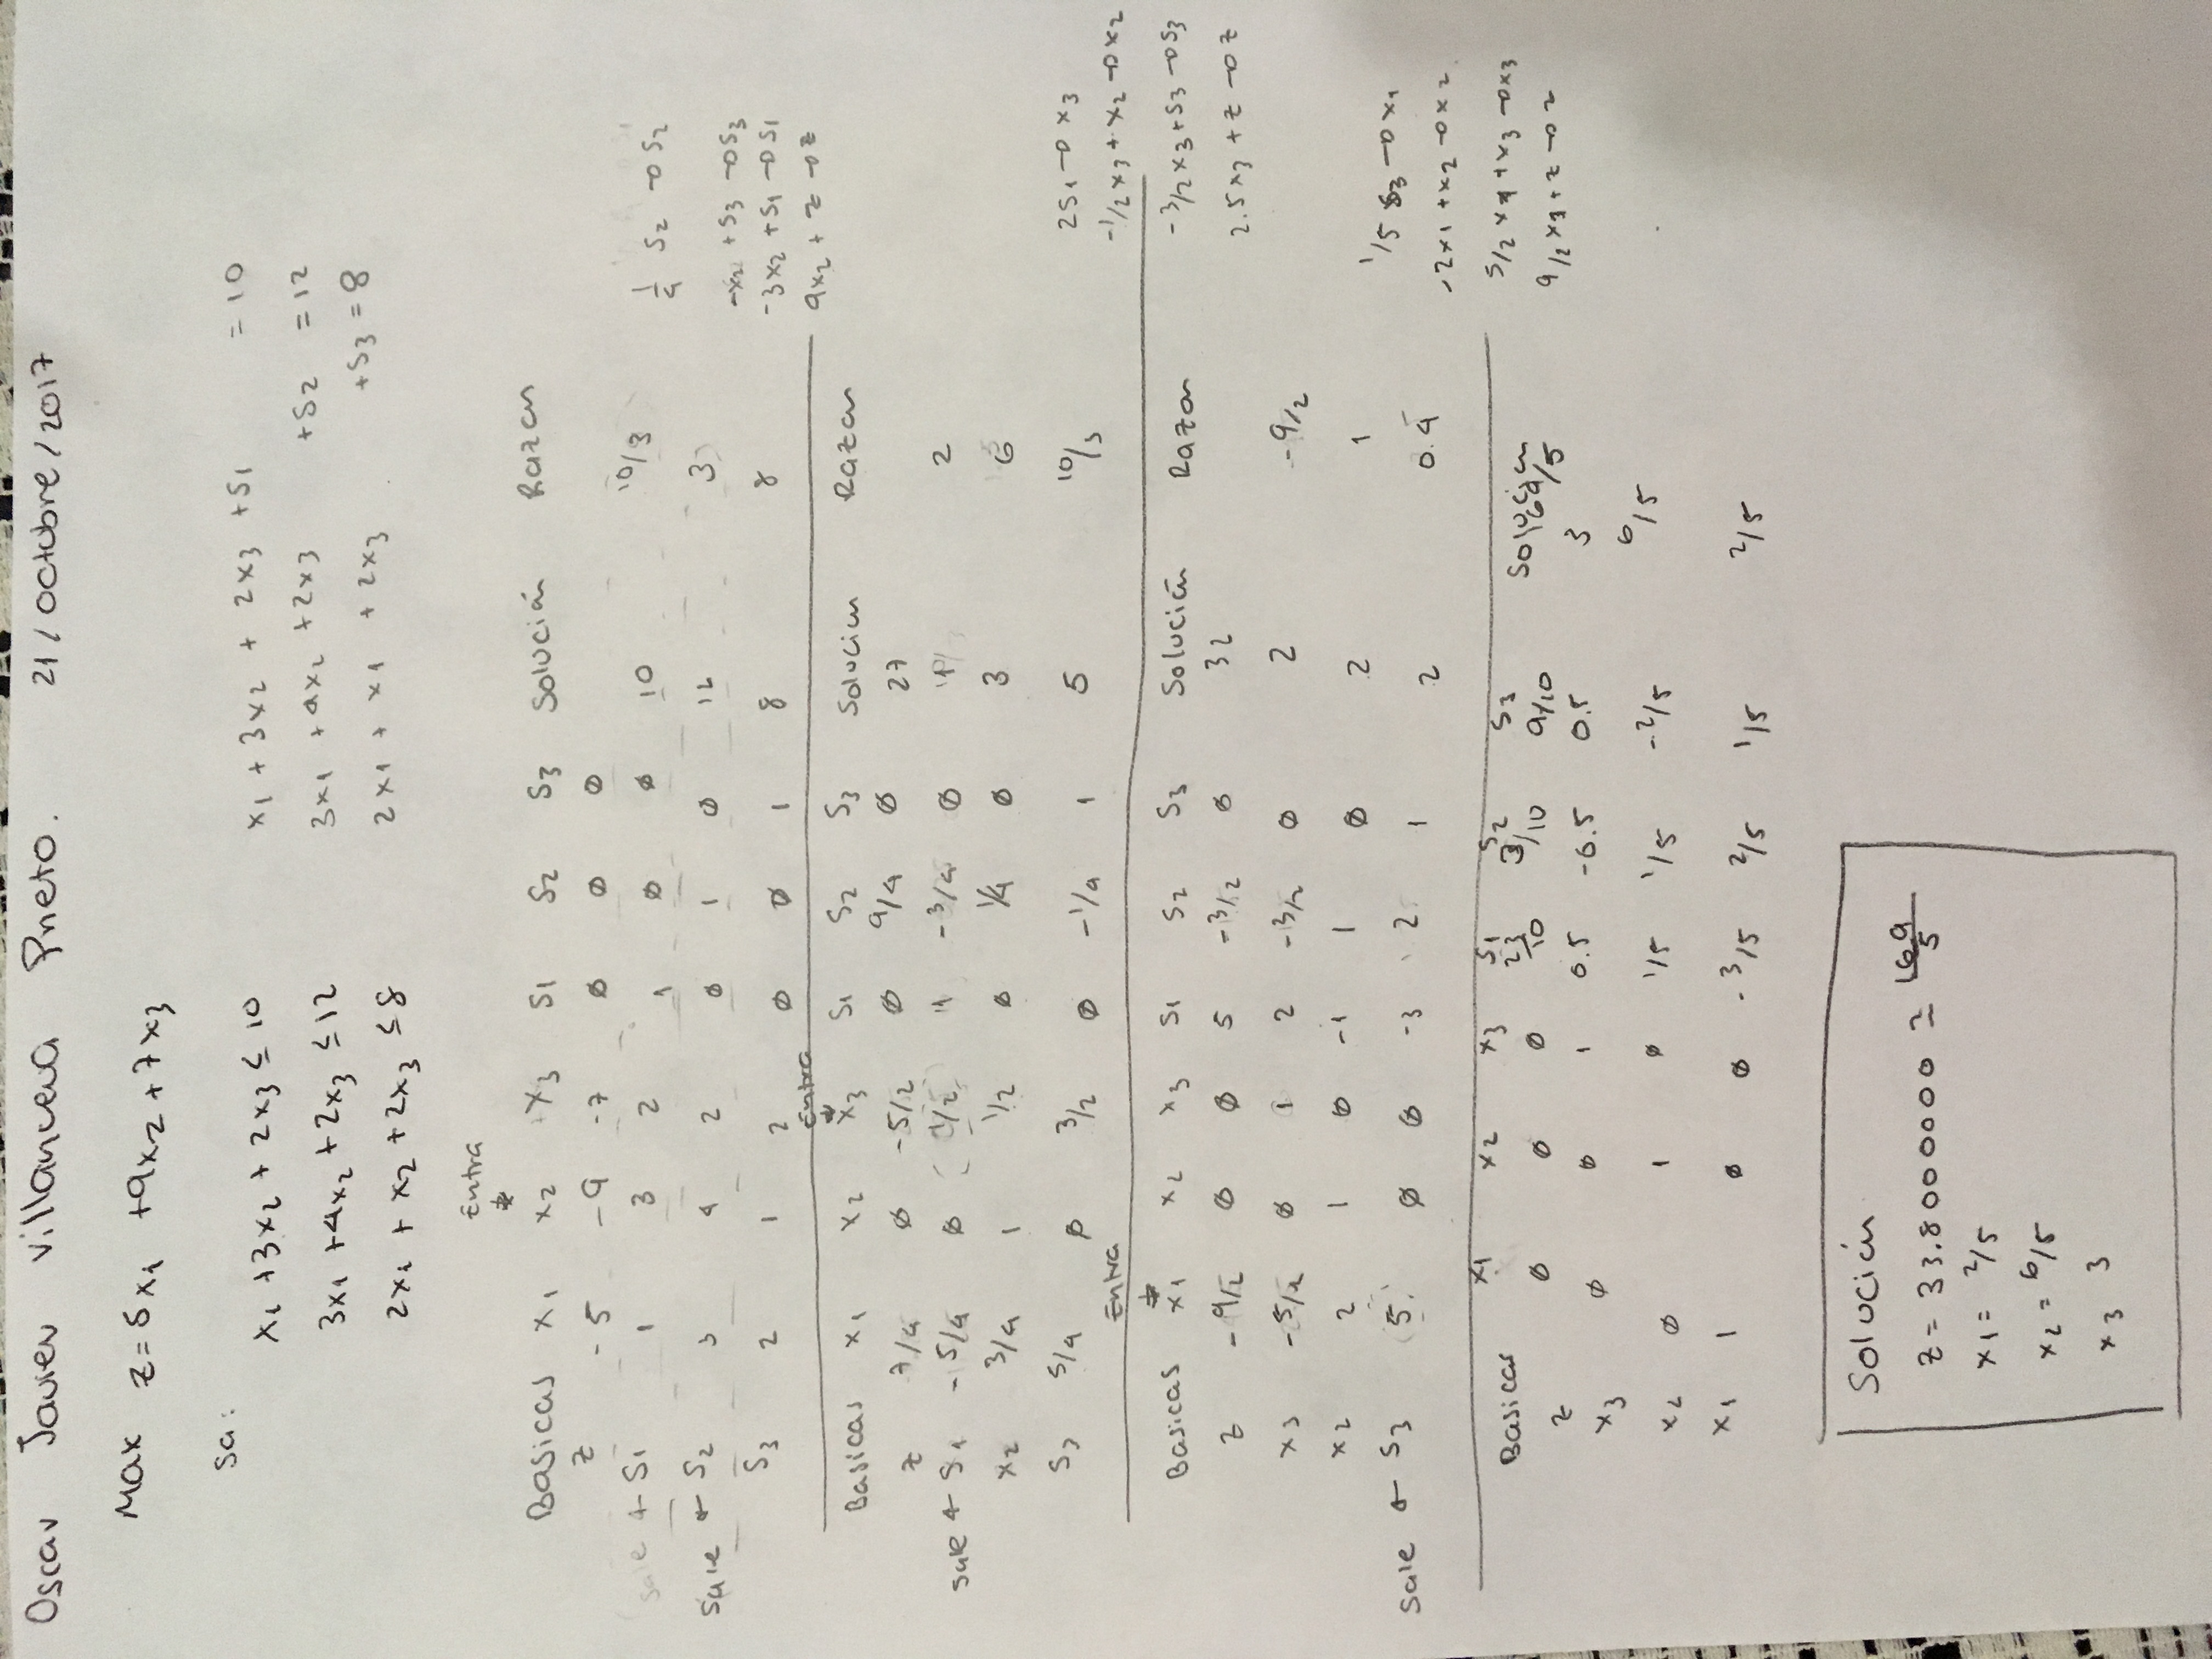 Oscar Javier Villanueva Prieto. 21/octubre/2017
Max z=5x1 +9x2+7x3
Sa:
x1 +3x2 + 2x3 ≤ 10 x1 + 3x2 + 2x3 +S1 = 10
3x1 +4x2 +2x3 ≤12 3x1 +4x2 +2x3 +S2 =12
2x1 + x2 +2x3 ≤8 2x1 + x1 + 2x3 +S3 = 8
Entra
Basicas x1 x2 x3 S1 S2 S3 Solución Razon
z -5 -9 -7 0 0 0
Sale ← S1 1 3 2 1 0 0 10 10/3
1/4 S2 → S2
Sale ← S2 3 4 2 0 1 0 12 3
-x2 +S3 →S3
S3 2 1 2 0 0 1 8 8
-3x2 +S1 →S1
9x2 + z → z
Entra
Basicas x1 x2 x3 S1 S2 S3 Solucion Razon
z 7/4 0 -5/2 0 9/4 0 27
Sale ← S1 -5/4 0 1/2 1 -3/4 0 2
x2 3/4 1 1/2 0 1/4 0 3 6
S3 5/4 0 3/2 0 -1/4 1 5 10/3
2S1 → x3
-1/2x3 + x2 →x2
Entra
Basicas x1 x2 x3 S1 S2 S3 Solución Razon
-3/2x3+S3 →S3
z -9/2 0 0 5 -3/2 0 32
2.5x3 + z → z
x3 -5/2 0 1 2 -3/2 0 2 -9/2
x2 2 1 0 -1 1 0 2 1
Sale ← S3 5 0 0 -3 2 1 2 0.4
1/5 S3 → x1
-2x1 +x2 → x2
Basicas x1 x2 x3 S1 S2 S3 Solucion
5/2 x1 +x3 →x3
z 0 0 0 23/10 3/10 9/10 169/5
9/2x1+z → z
x3 0 0 1 0.5 -0.5 0.5 3
x2 0 1 0 1/5 1/5 -2/5 6/5
x1 1 0 0 -3/5 2/5 1/5 2/5
Solución
z = 33.8000000 ≃ 169/5
x1= 2/5
x2 = 6/5
x3 3